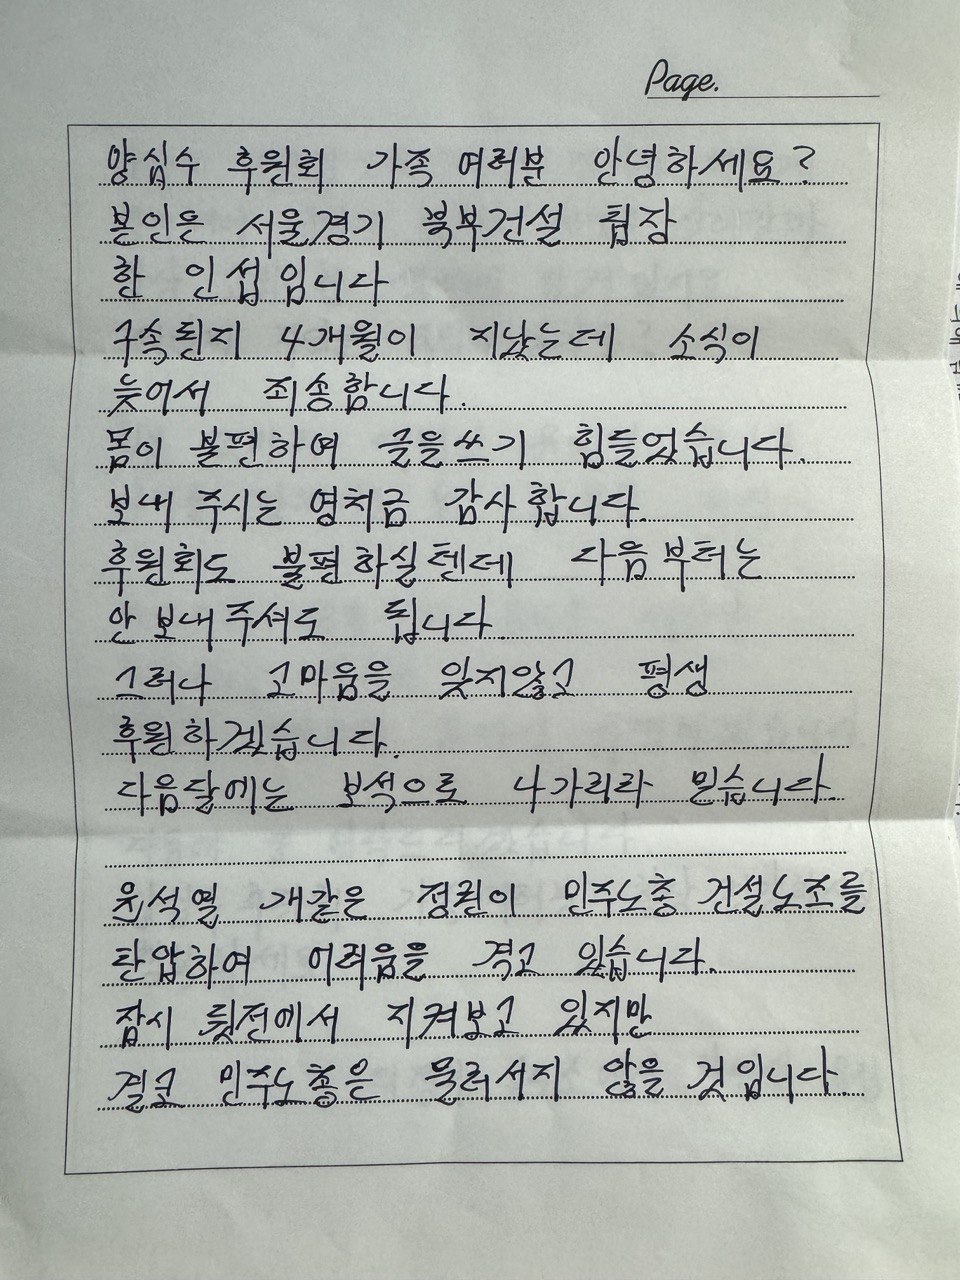 Page.
양심수 후원회 가족 여러분 안녕하세요?
본인은 서울경기 북부건설 팀장
한 인섭입니다
구속된지 4개월이 지났는데 소식이
늦어서 죄송합니다.
몸이 불편하여 글을쓰기 힘들었습니다.
보내 주시는 영치금 감사합니다.
후원회도 불편하실텐데 다음부터는
안 보내주셔도 됩니다.
그러나 고마움을 잊지않고 평생
후원하겠습니다.
다음달에는 보석으로 나가리라 믿습니다.
윤석열 개같은 정권이 민주노총 건설노조를
탄압하여 어려움을 격고 있습니다.
잠시 뒷전에서 지켜보고 있지만
결코 민주노총은 물러서지 않을 것입니다.